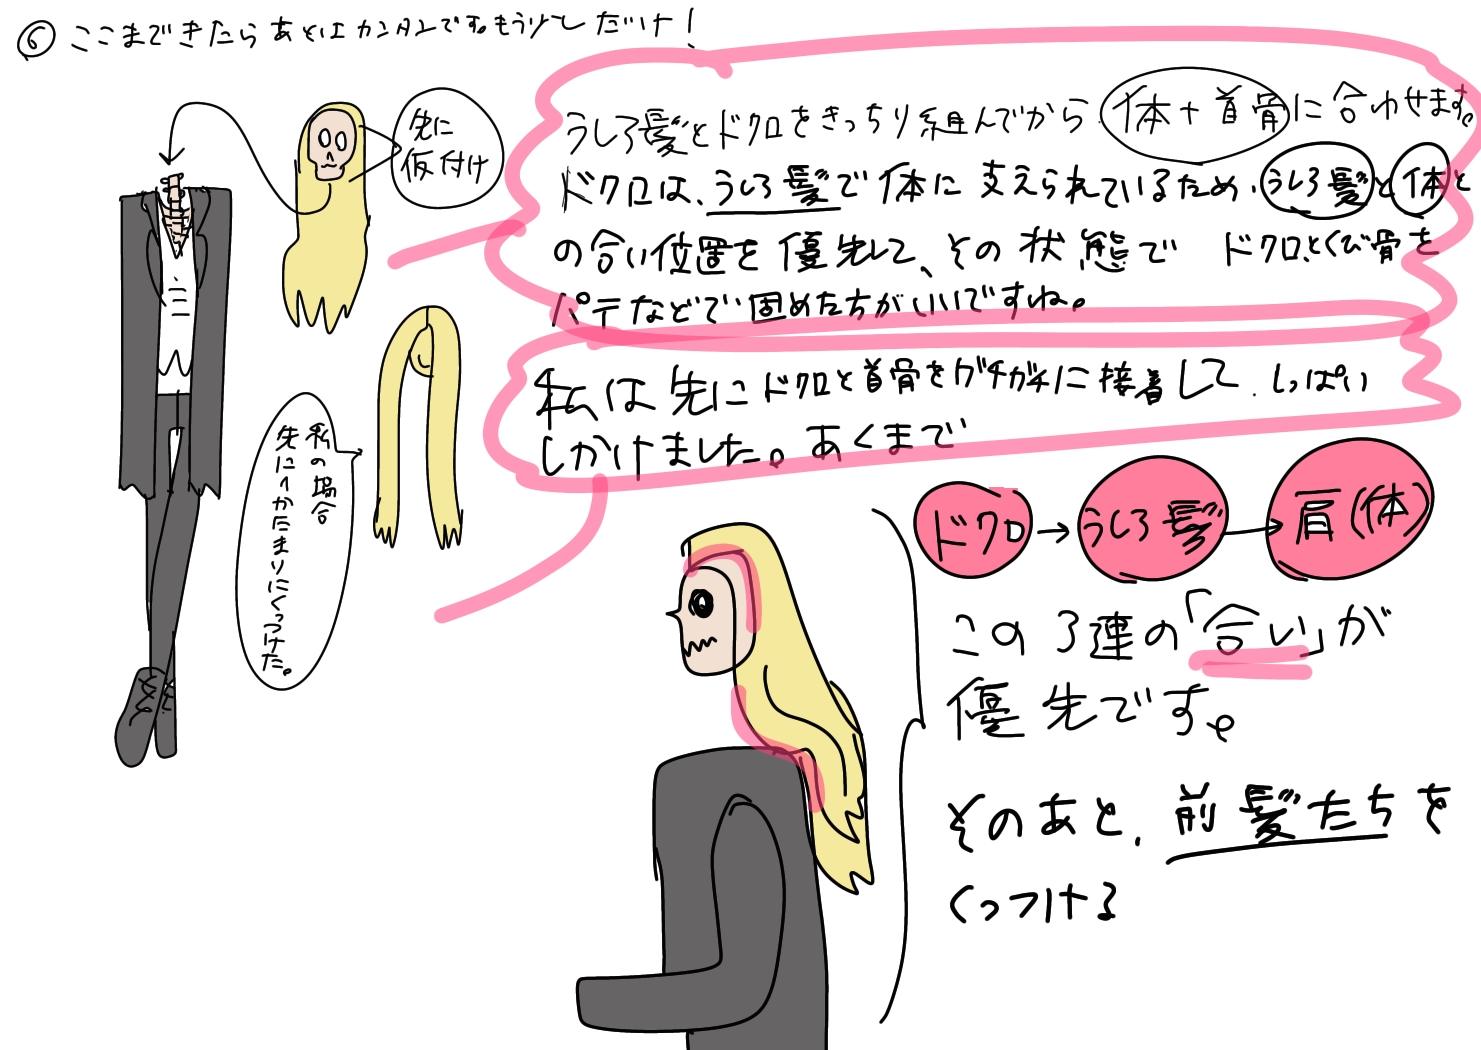 ⑥ ここまできたらあとはカンタンです。もう少しだけ!
先に
仮付け
うしろ髪とドクロをきっちり組んでから、体+首骨に合わせます。
ドクロは、うしろ髪で体に支えられているため、うしろ髪と体と
の合い位置を優先して、その状態で ドクロとくび骨を
パテなどで固めたほうがいいですね。
私は先にドクロと首骨をガチガチに接着して、しっぱい
しかけました。あくまで
私の場合
先に1かたまりにくっつけた。
ドクロ→うしろ髪→肩(体)
この3連の「合い」が
優先です。
そのあと、前髪たちを
くっつける